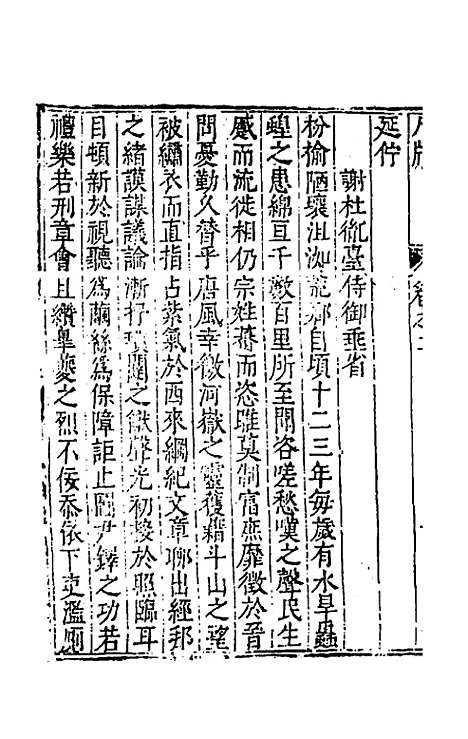 延佇
謝杜衹臺侍御垂省
枌榆陋壤沮洳荒鄉自頃十二三年每歲有水旱蟲
蝗之患綿亘千數百里所至聞咨嗟愁嘆之聲民生
慼而流徙相仍宗姓蕃而恣睢莫制富庶靡徵於晉
問憂勤久替乎唐風幸徼河嶽之靈獲藉斗山之望
被繡衣而直指占紫氣於西來綱紀文章聊出經邦
之緒謨謀議論漸抒之猷聲光初接於照臨耳
目頓新於視聽為繭絲為保障詎止尹鐸之功若
禮樂若刑章會且纘臯夔之烈不佞忝依下吏濫廁